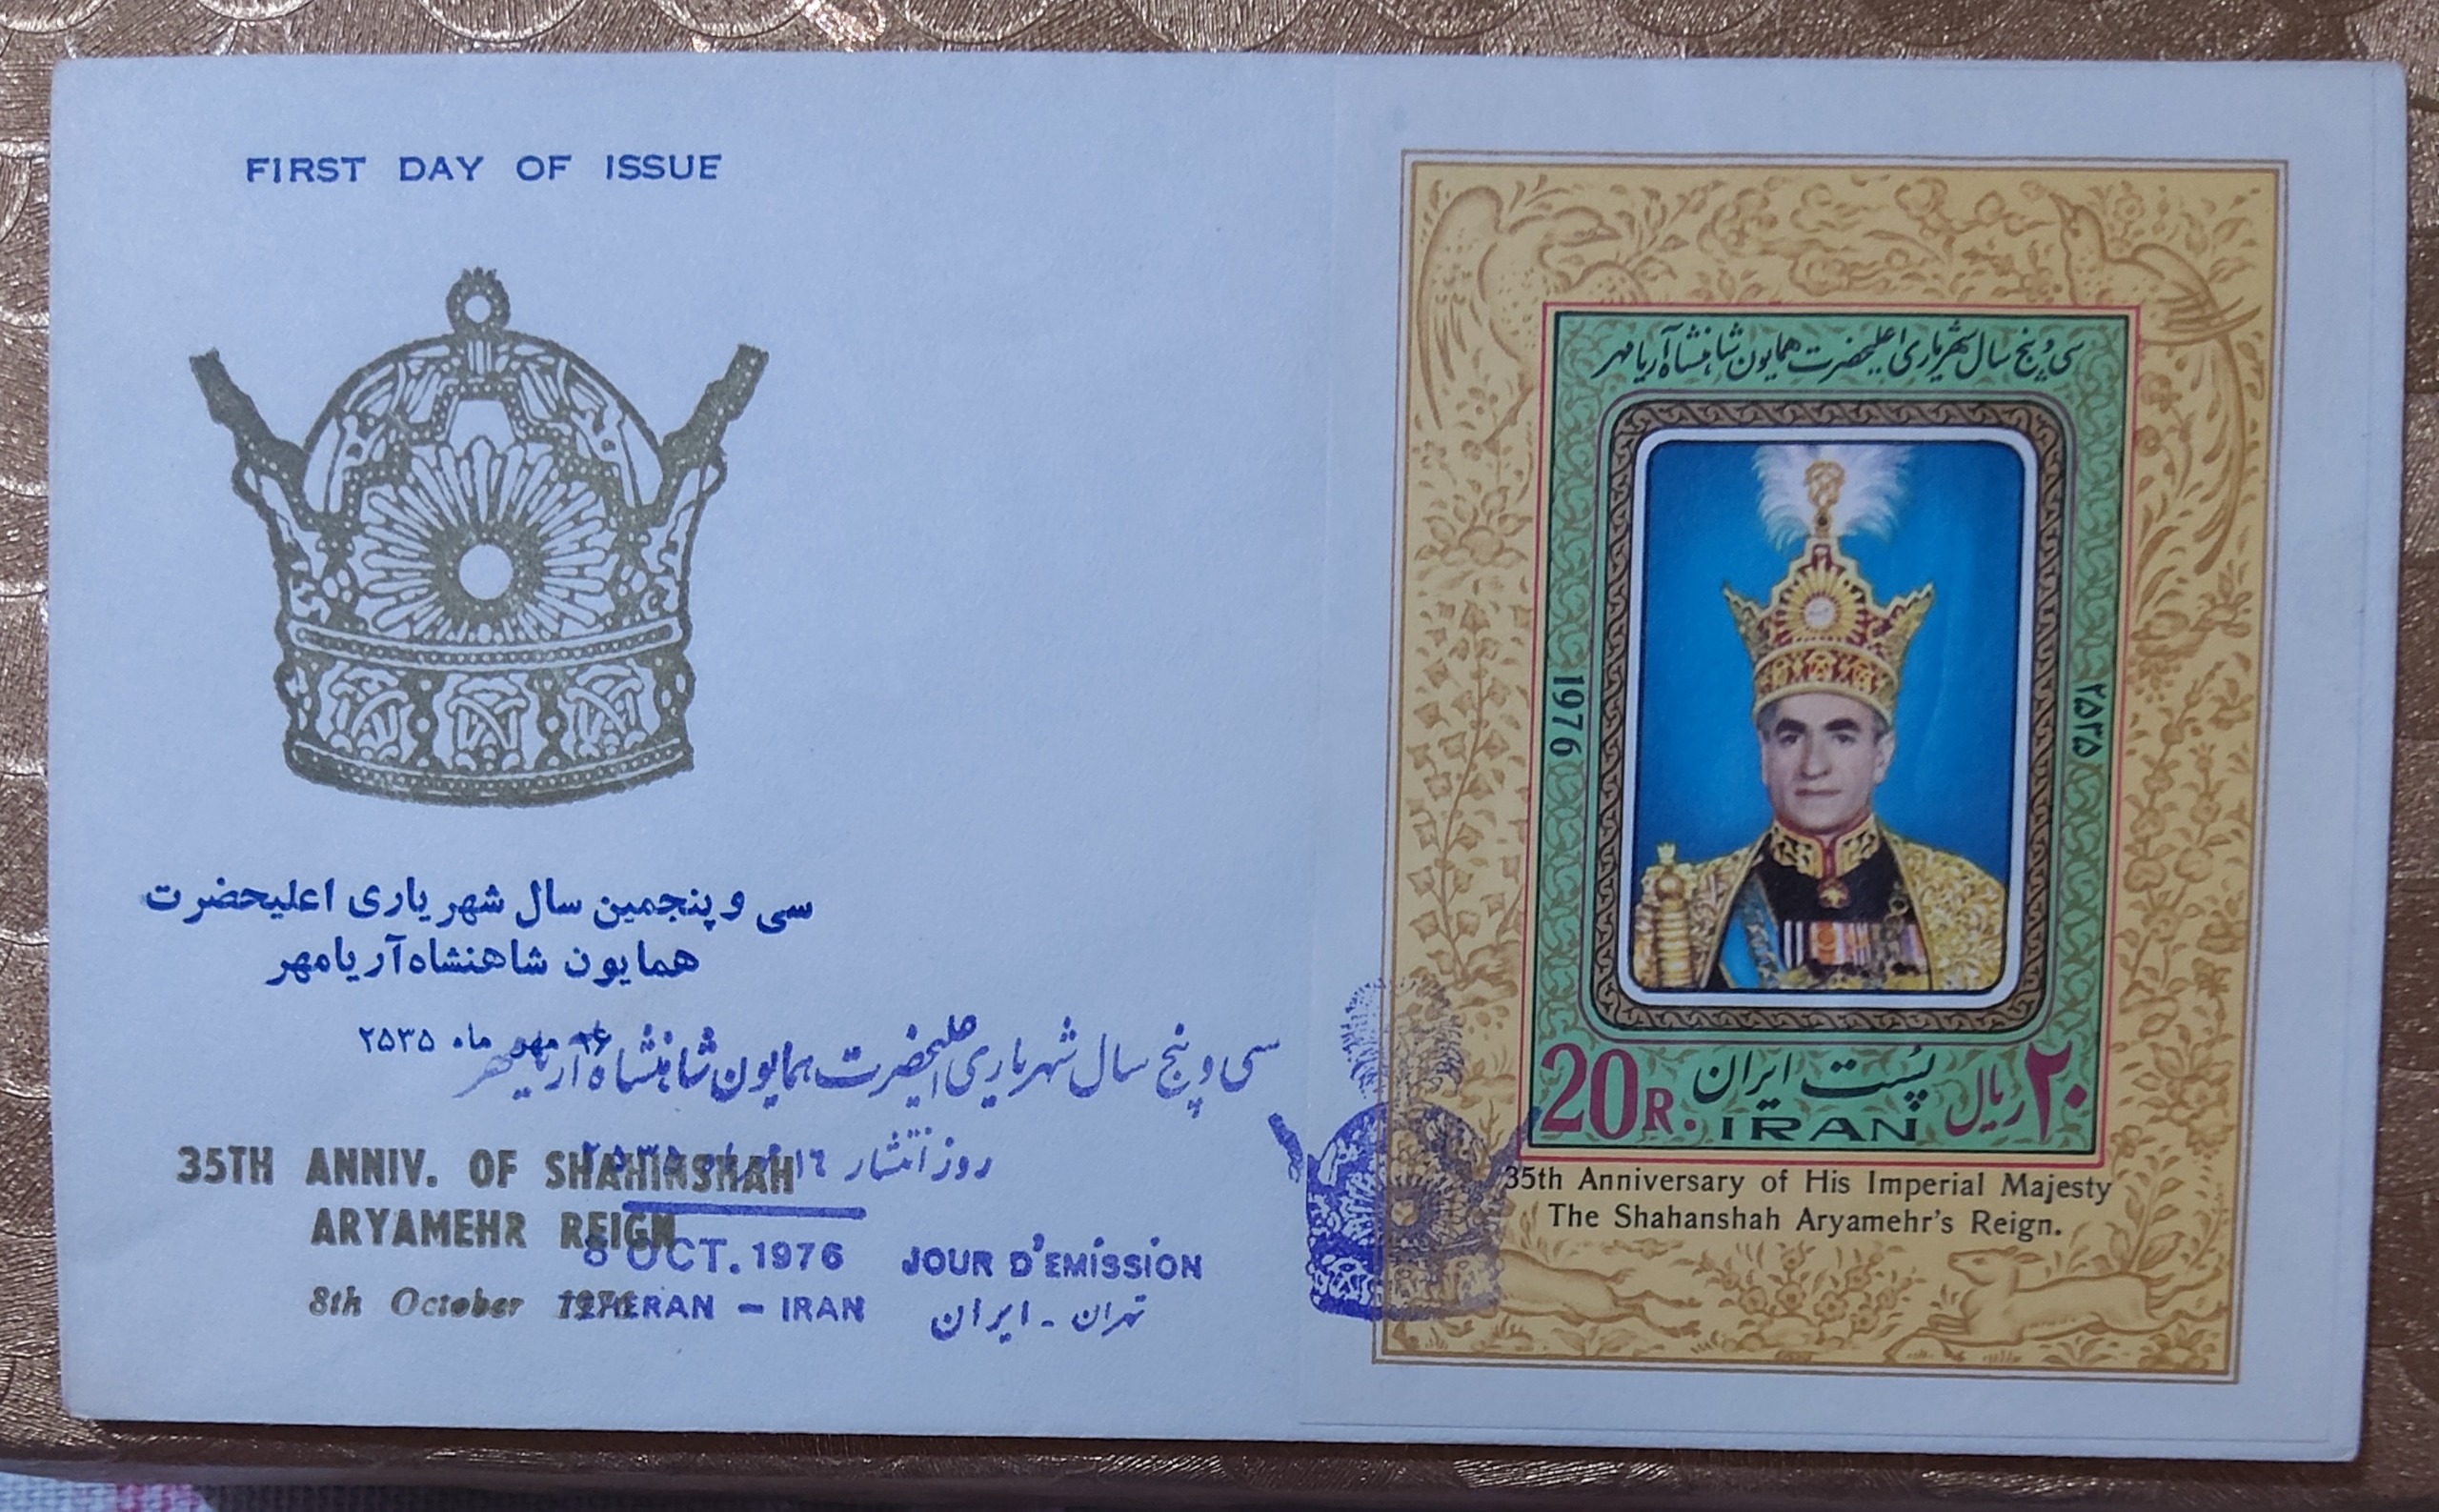 FIRST DAY OF ISSUE
سی و پنجمین سال شهریاری اعلیحضرت
همایون شاهنشاه آریامهر
مهر ماه ۲۵۳۵
35TH ANNIV. OF SHAHINSHAH
ARYAMEHR REIGN
8th October
سی و پنج سال شهریاری اعلیحضرت همایون شاهنشاه آریامهر
روز انتشار ۱٦
8 OCT. 1976 JOUR D'EMISSION
TEHERAN - IRAN تهران - ایران
سی و پنج سال شهریاری اعلیحضرت همایون شاهنشاه آریامهر
1976
۲۵۳۵
20R. پست ایران ۲۰ ریال
IRAN
35th Anniversary of His Imperial Majesty
The Shahanshah Aryamehr's Reign.